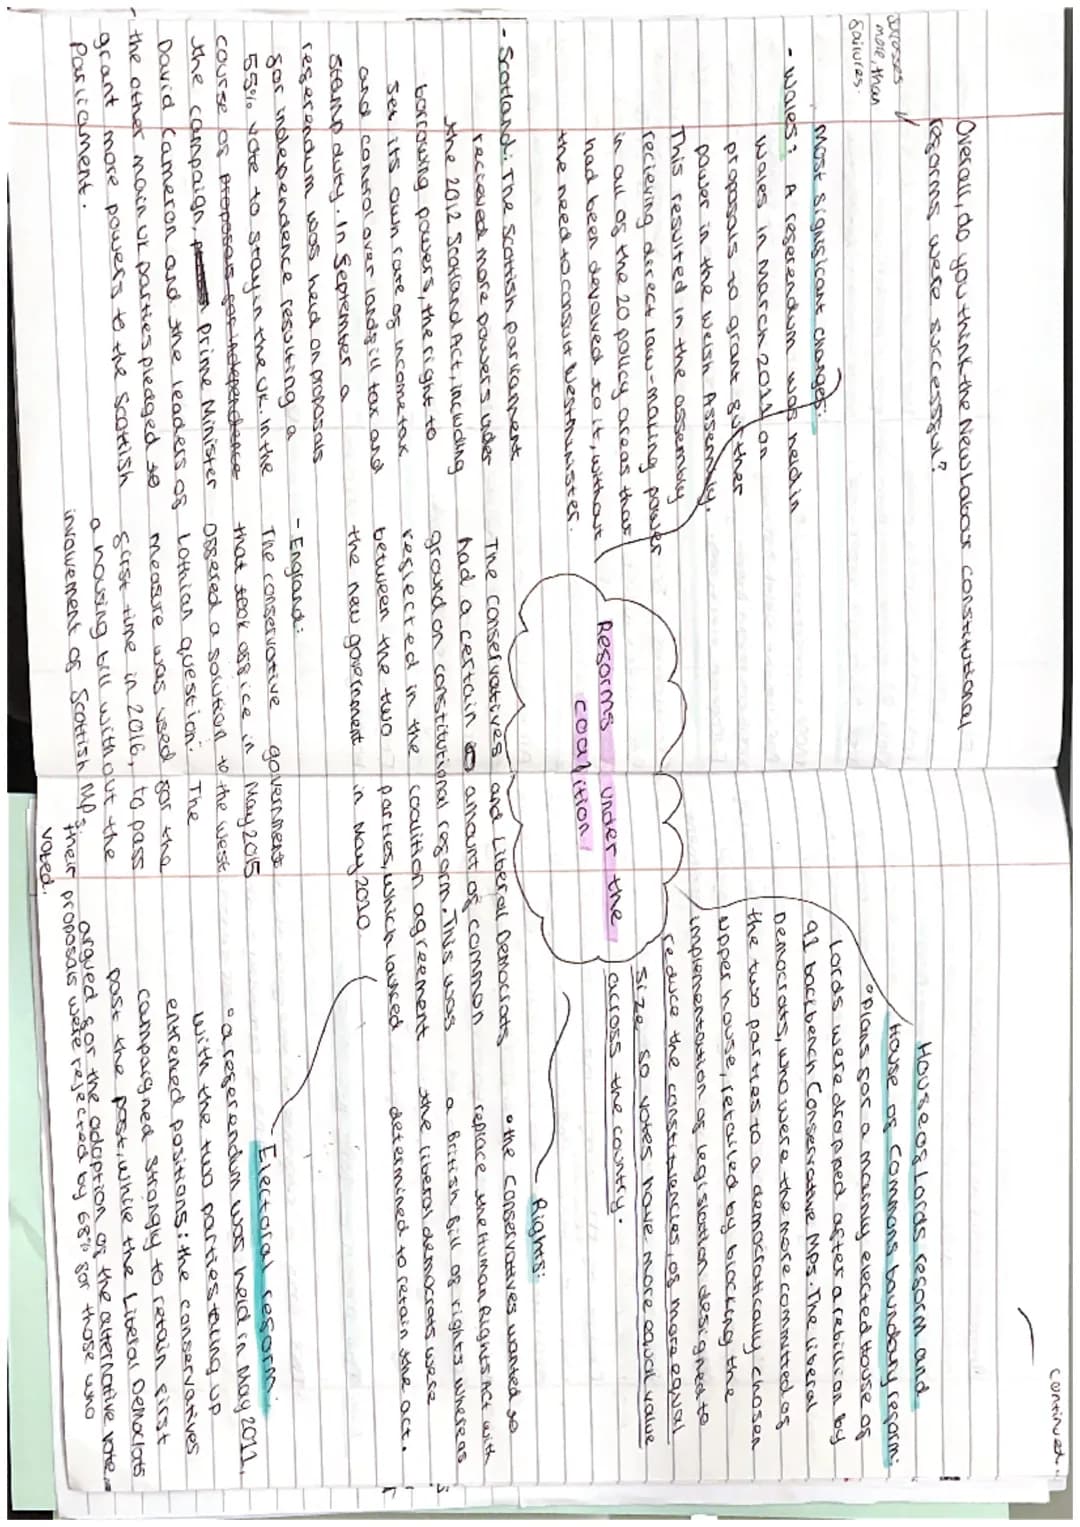 Overall, do you think the New Labour constitutional
reforms were successful?
Successes
more, than
failures.
Most significant changes:
- Wales: A referendum was held in
Wales in March 2011 on
proposals to grant further
power in the Welsh Assembly.
This resulted in the assembly
recieving direct law-making power
in all of the 20 policy areas that
had been devolved to it, without
the need to consult Westminister.
- Scotland: The Scottish parliament
recieved more powers under
the 2012 Scotland Act, including
borrowing powers, the right to
set its own rate of income tax
and control over landfill tax and
stamp duty. In September a
referendum was held on proposals
for independence resulting a
55% vote to stay in the UK. In the
course of proposals for independence
the campaign, prime Minister
David Cameron and the leaders of
the other main UK parties pledged to
grant more powers to the Scottish
Parliament.
Reforms under the
coalition
The conservatives and Liberal Democrats
had a certain amount of common
ground on constitutional reform. This was
reflected in the coalition agreement
between the two parties, which launced
the new government in May 2010.
- England:
The conservative government
that took office in May 2015
offered a solution to the West
Lothian question. The
measure was used for the
first time in 2016, to pass
a housing bill without the
involvement of Scottish MPs.
continued..
House of Lords reform and
House of Commons boundary reform:
°Plans for a mainly elected House of
Lords were dropped after a rebillion by
91 backbench Conservative MPs. The liberal
Democrats, who were the more committed of
the two parties to a democratically chosen
upper house, retailed by blocking the
implementation of legislation designed to
reduce the constituencies, of more equal
size so votes have more equal value
across the country.
Rights:
°the Conservatives wanted to
replace the Human Rights Act with
a British Bill of rights whereas
the liberal democrats were
determined to retain the act.
Electoral reform:
°a referendum was held in May 2011,
with the two parties taking up
entrenced positions: the conservatives
campaigned strongly to retain first
past the post, while the Liberal Democrats
argued for the adoption of the alternative vote,
their proposals were rejected by 68% for those who
voted.